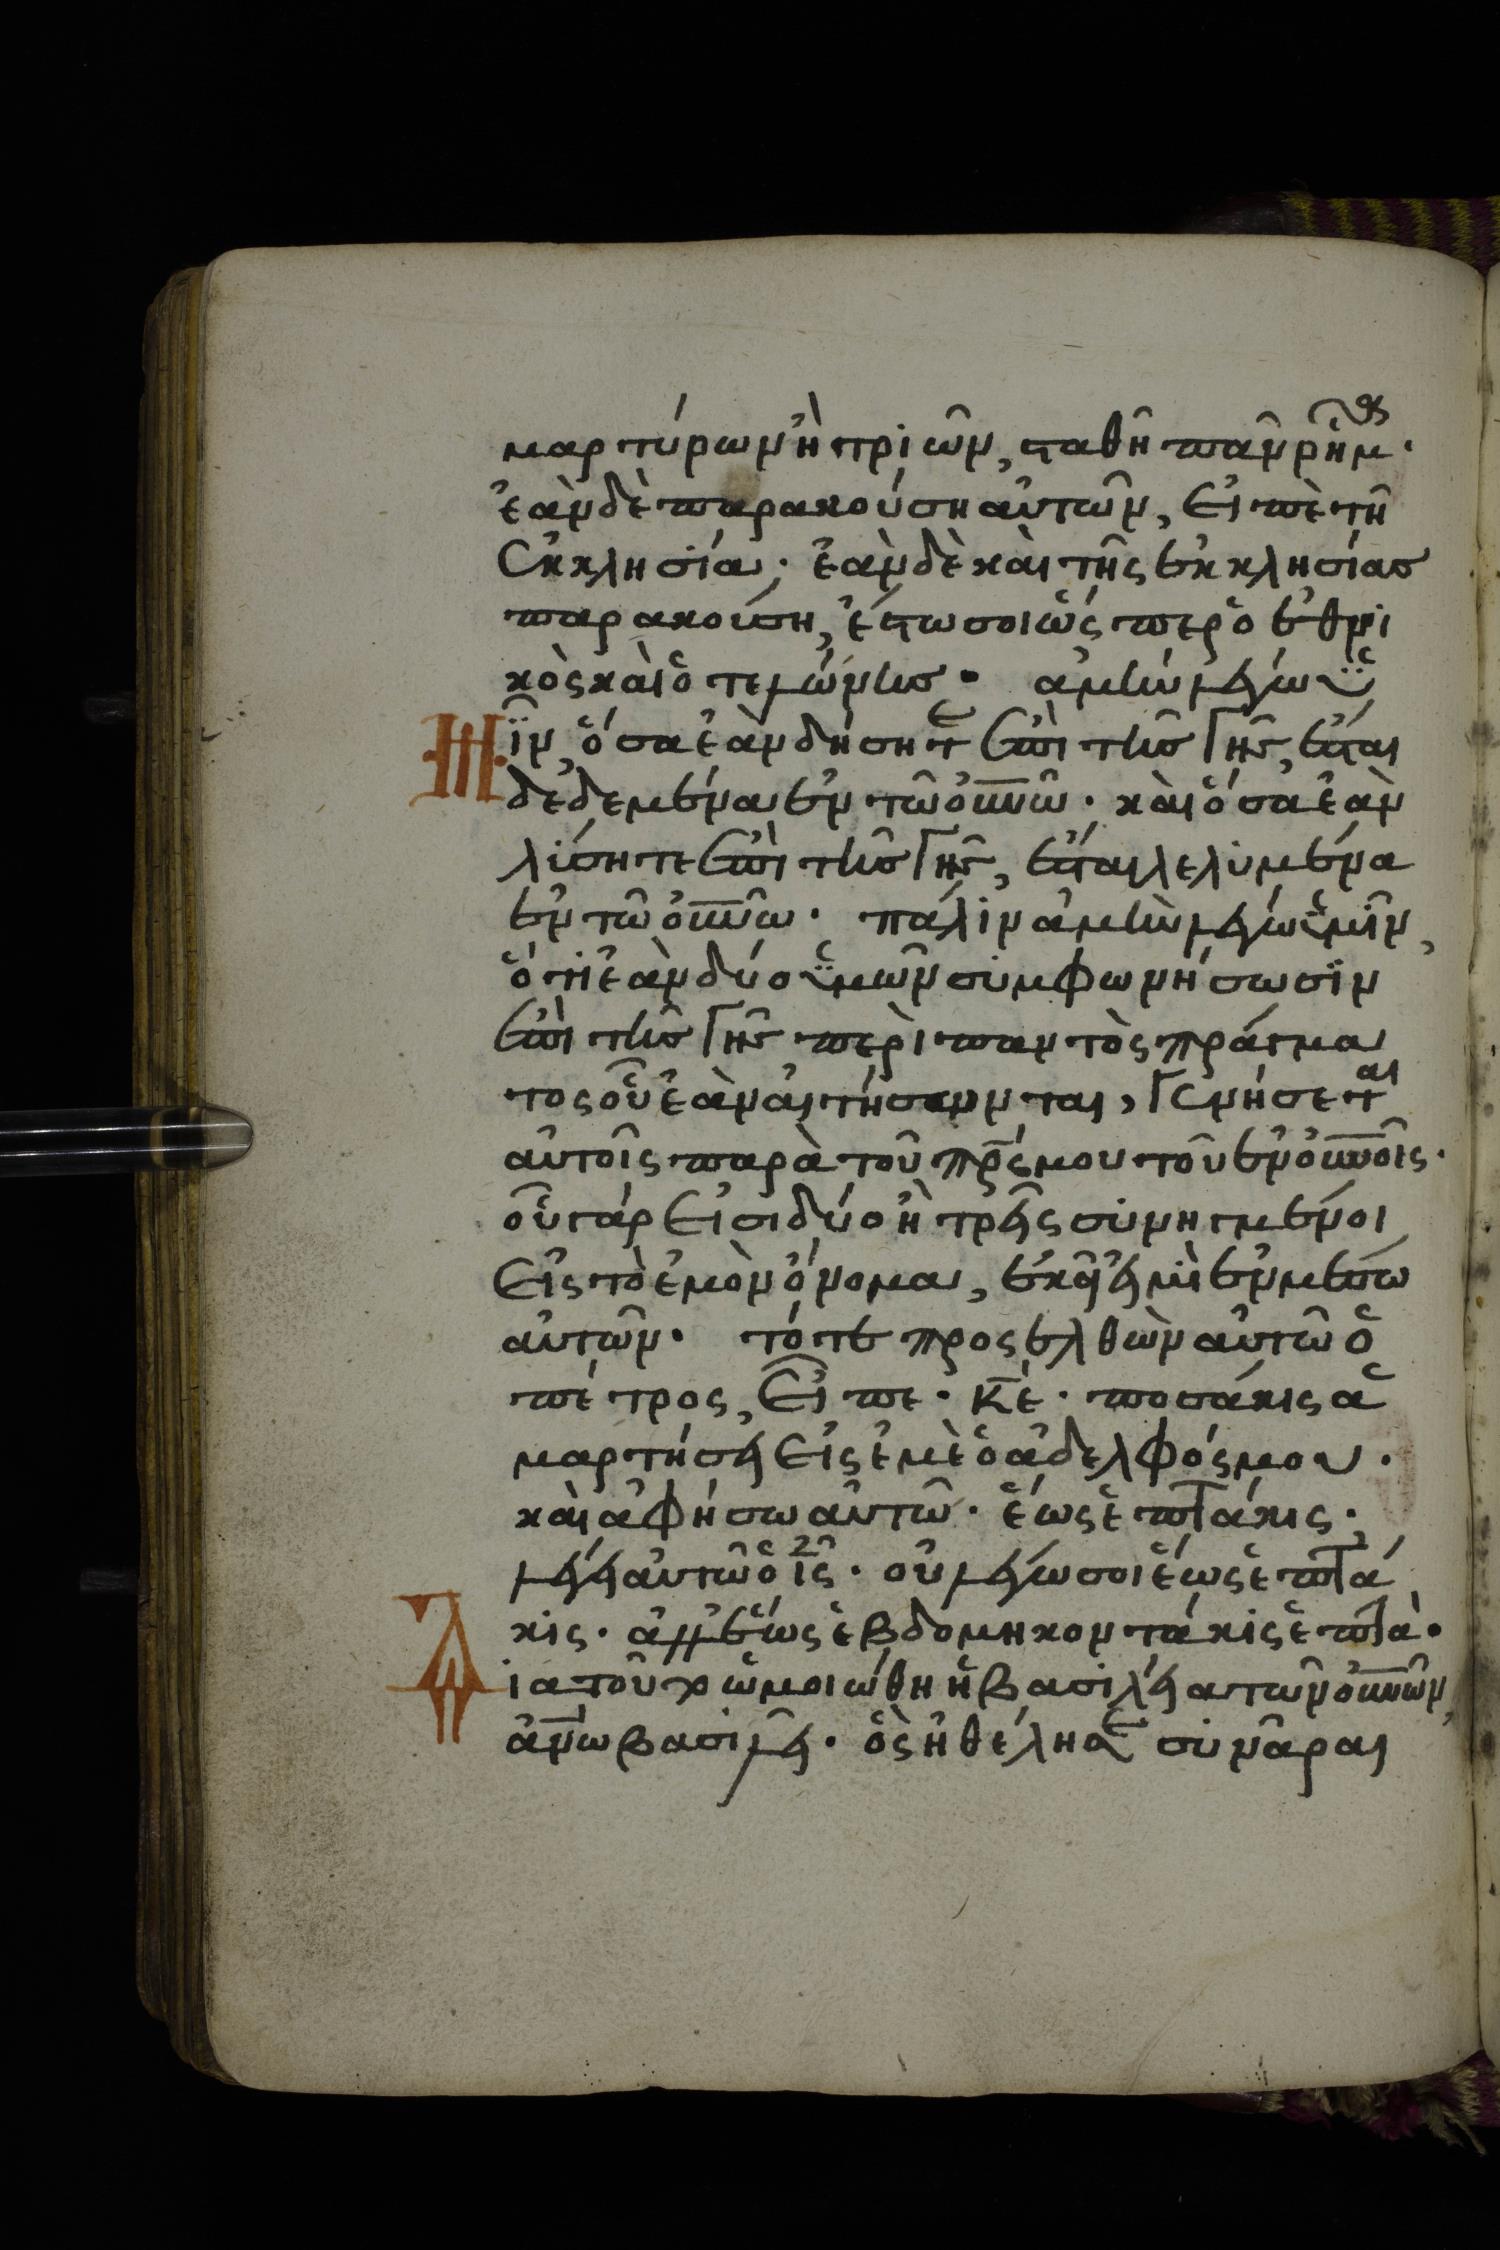 μαρτύρων ἢ τριῶν, σταθῆ πᾶν ῥῆμ·
ἐὰν δὲ παρακούση αὐτῶν, εἰπὲ τῆ
ἐκκλησία· ἐὰν δὲ καὶ τῆς ἐκκλησίας
παρακούση, ἔστω σοι ὥσπερ ὁ ἐθνι
κὸς καὶ ὁ τελώνης· ἀμὴν λέγω ὑ
μῖν, ὅσα ἐὰν δήσητε ἐπὶ τῆς γῆς, ἔσται
δεδεμένα ἐν τῶ οὐνῶ· καὶ ὅσα ἐὰν
λύσητε ἐπὶ τῆς γῆς, ἔσται λελυμένα
ἐν τῶ οὐνῶ· πάλιν ἀμὴν λέγω ὑμῖν,
ὅτι ἐὰν δύο ὑμῶν συμφωνήσωσϊν
ἐπὶ τῆς γῆς περὶ παντὸς πράγμα
τος οὗ ἐὰν αἰτήσωνται, γενήσεται
αὐτοῖς παρὰ τοῦ πρς μου τοῦ ἐν οὐνοῖς·
οὗ γάρ εἰσι δύο ἢ τρεῖς συνηγμένοι
εἰς τὸ ἐμὸν ὄνομα, ἐκεῖ εἰμὶ ἐν μέσω
αὐτῶν· τότε προςελθὼν αὐτῶ ὁ
πέτρος, εἶπε· κε· ποσάκις ἁ
μαρτήσει εἰς ἐμὲ ὁ ἀδελφός μου·
καὶ ἀφήσω αὐτῶ· ἕως ἑπτάκις·
λέγει αὐτῶ ὁ ις· οὐ λέγω σοι ἕως ἑπτά
κις· ἀλλ' ἕως ἑβδομηκοντάκις ἑπτὰ·
Διατοῦτο ὡμοιώθη ἡ βασιλεία τῶν οὐνῶν,
ἀνω βασιλεῖ· ὃς ἠθέλησε συνᾶραι